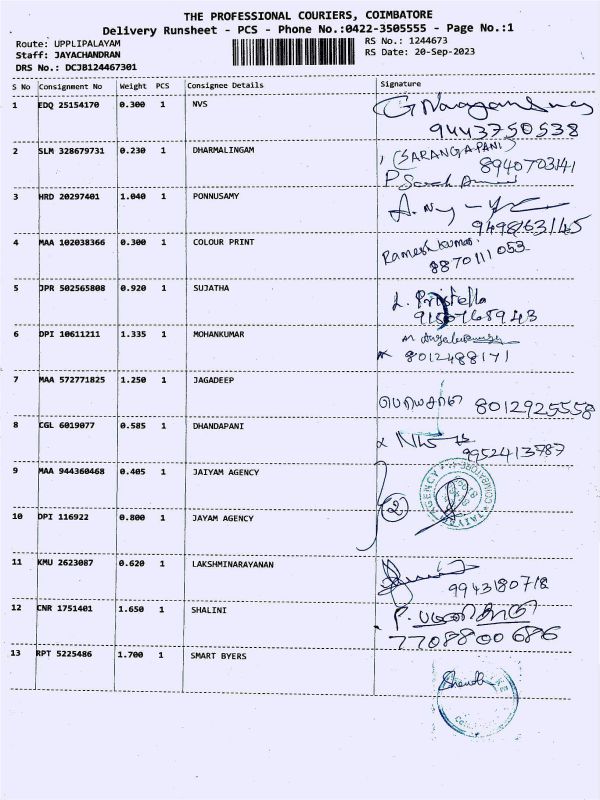 THE PROFESSIONAL COURIERS, COIMBATORE
Delivery Runsheet - PCS - Phone No.:0422-3505555 - Page No.:1
Route: UPPLIPALAYAM
RS No.: 1244673
Staff: JAYACHANDRAN
RS Date: 20-Sep-2023
DRS No.: DCJB124467301
S No Consignment No Weight PCS Consignee Details Signature
1 EDQ 25154170 0.300 1 NVS
9443750538
2 SLM 328679731 0.230 1 DHARMALINGAM
(SARANGAPANI)
8940703141
3 HRD 20297401 1.040 1 PONNUSAMY
9498163145
4 MAA 102038366 0.300 1 COLOUR PRINT
Rameshkumar
8870111053
5 JPR 502565808 0.920 1 SUJATHA
L. Pristella
6 DPI 10611211 1.335 1 MOHANKUMAR
8012488171
7 MAA 572771825 1.250 1 JAGADEEP
8012925558
8 CGL 6019077 0.585 1 DHANDAPANI
9952413787
9 MAA 944360468 0.405 1 JAIYAM AGENCY
JAIYAM AGENCY
COIMBATORE
2
10 DPI 116922 0.800 1 JAYAM AGENCY
11 KMU 2623087 0.620 1 LAKSHMINARAYANAN
9943180718
12 CNR 1751401 1.650 1 SHALINI
7708800686
13 RPT 5225486 1.700 1 SMART BYERS